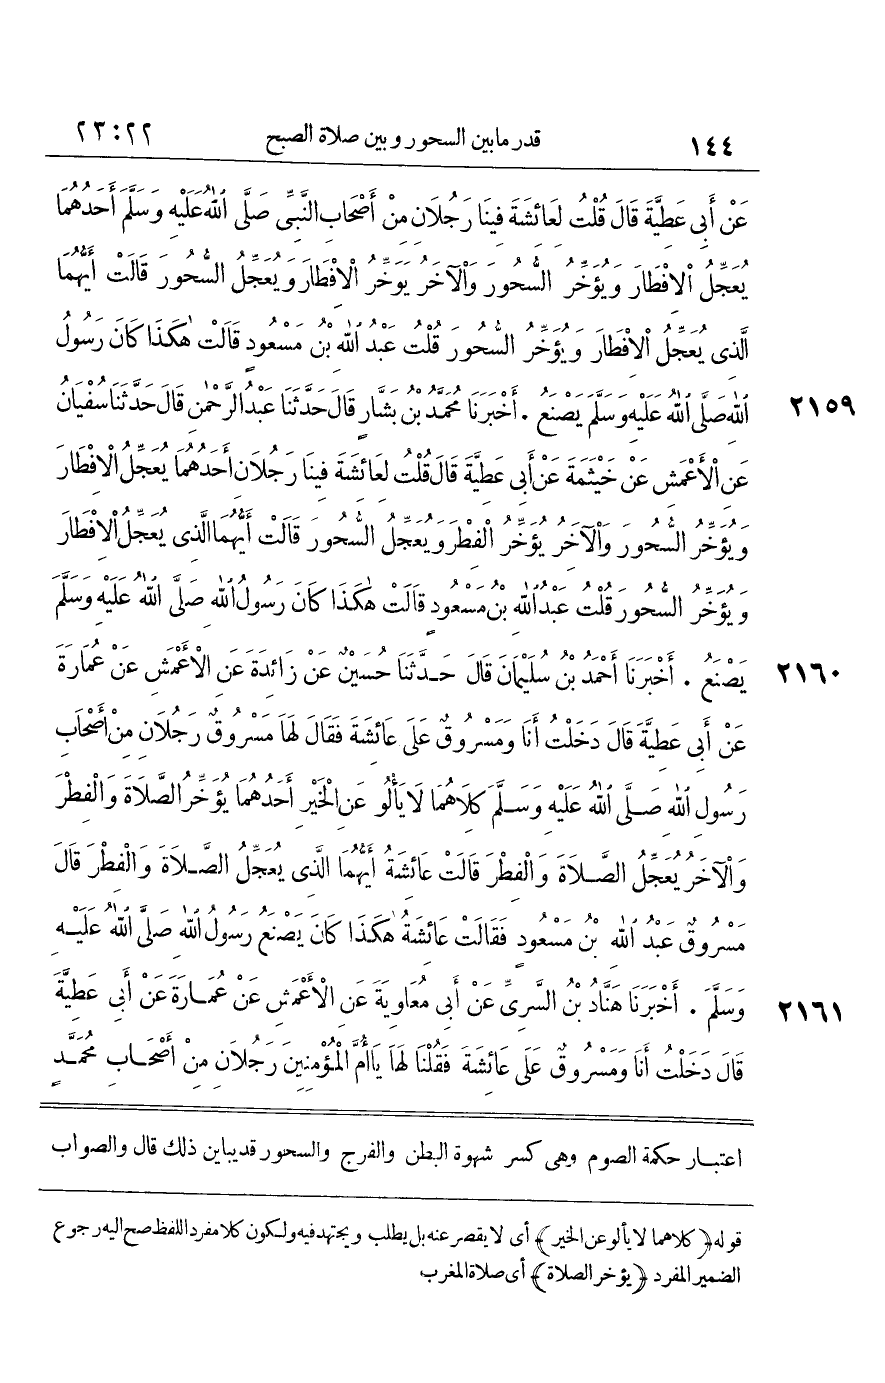 ١٤٤ قدر مابين السحور وبين صلاة الصبح ٢٢:٢٣
عَنْ أَبِي عَطِيَّةَ قَالَ قُلْتُ لِعَائِشَةَ فِينَا رَجُلَانِ مِنْ أَصْحَابِ النَّبِيِّ صَلَّى اللهُ عَلَيْهِ وَسَلَّمَ أَحَدُهُمَا
يُعَجِّلُ الْإِفْطَارَ وَيُؤَخِّرُ السُّحُورَ وَالْآخَرُ يُؤَخِّرُ الْإِفْطَارَ وَيُعَجِّلُ السُّحُورَ قَالَتْ أَيُّهُمَا
الَّذِى يُعَجِّلُ الْإِفْطَارَ وَيُؤَخِّرُ السُّحُورَ قُلْتُ عَبْدُ اللهِ بْنُ مَسْعُودٍ قَالَتْ هٰكَذَا كَانَ رَسُولُ
٢١٥٩ اللهِ صَلَّى اللهُ عَلَيْهِ وَسَلَّمَ يَصْنَعُ . أَخْبَرَنَا مُحَمَّدُ بْنُ بَشَّارٍ قَالَ حَدَّثَنَا عَبْدُ الرَّحْمٰنِ قَالَ حَدَّثَنَا سُفْيَانُ
عَنِ الْأَعْمَشِ عَنْ خَيْثَمَةَ عَنْ أَبِي عَطِيَّةَ قَالَ قُلْتُ لِعَائِشَةَ فِينَا رَجُلَانِ أَحَدُهُمَا يُعَجِّلُ الْإِفْطَارَ
وَيُؤَخِّرُ السُّحُورَ وَالْآخَرُ يُؤَخِّرُ الْفِطْرَ وَيُعَجِّلُ السُّحُورَ قَالَتْ أَيُّهُمَا الَّذِى يُعَجِّلُ الْإِفْطَارَ
وَيُؤَخِّرُ السُّحُورَ قُلْتُ عَبْدُ اللهِ بْنُ مَسْعُودٍ قَالَتْ هٰكَذَا كَانَ رَسُولُ اللهِ صَلَّى اللهُ عَلَيْهِ وَسَلَّمَ
٢١٦٠ يَصْنَعُ . أَخْبَرَنَا أَحْمَدُ بْنُ سُلَيْمَانَ قَالَ حَدَّثَنَا حُسَيْنٌ عَنْ زَائِدَةَ عَنِ الْأَعْمَشِ عَنْ عُمَارَةَ
عَنْ أَبِي عَطِيَّةَ قَالَ دَخَلْتُ أَنَا وَمَسْرُوقٌ عَلَى عَائِشَةَ فَقَالَ لَهَا مَسْرُوقٌ رَجُلَانِ مِنْ أَصْحَابِ
رَسُولِ اللهِ صَلَّى اللهُ عَلَيْهِ وَسَلَّمَ كِلَاهُمَا لَا يَأْلُو عَنِ الْخَيْرِ أَحَدُهُمَا يُؤَخِّرُ الصَّلَاةَ وَالْفِطْرَ
وَالْآخَرُ يُعَجِّلُ الصَّلَاةَ وَالْفِطْرَ قَالَتْ عَائِشَةُ أَيُّهُمَا الَّذِى يُعَجِّلُ الصَّلَاةَ وَالْفِطْرَ قَالَ
مَسْرُوقٌ عَبْدُ اللهِ بْنُ مَسْعُودٍ فَقَالَتْ عَائِشَةُ هٰكَذَا كَانَ يَصْنَعُ رَسُولُ اللهِ صَلَّى اللهُ عَلَيْهِ
٢١٦١ وَسَلَّمَ . أَخْبَرَنَا هَنَّادُ بْنُ السَّرِيِّ عَنْ أَبِي مُعَاوِيَةَ عَنِ الْأَعْمَشِ عَنْ عُمَارَةَ عَنْ أَبِي عَطِيَّةَ
قَالَ دَخَلْتُ أَنَا وَمَسْرُوقٌ عَلَى عَائِشَةَ فَقُلْنَا لَهَا يَا أُمَّ الْمُؤْمِنِينَ رَجُلَانِ مِنْ أَصْحَابِ مُحَمَّدٍ
اعتبار حكمة الصوم وهى كسر شهوة البطن والفرج والسحور قديباين ذلك قال والصواب
قوله ﴿كلاهما لا يألو عن الخير﴾ أى لا يقصر عنه بل يطلب ويجتهد فيه ولكون كلا مفرد اللفظ صح اليه رجوع
الضمير المفرد ﴿يؤخر الصلاة﴾ أى صلاة المغرب